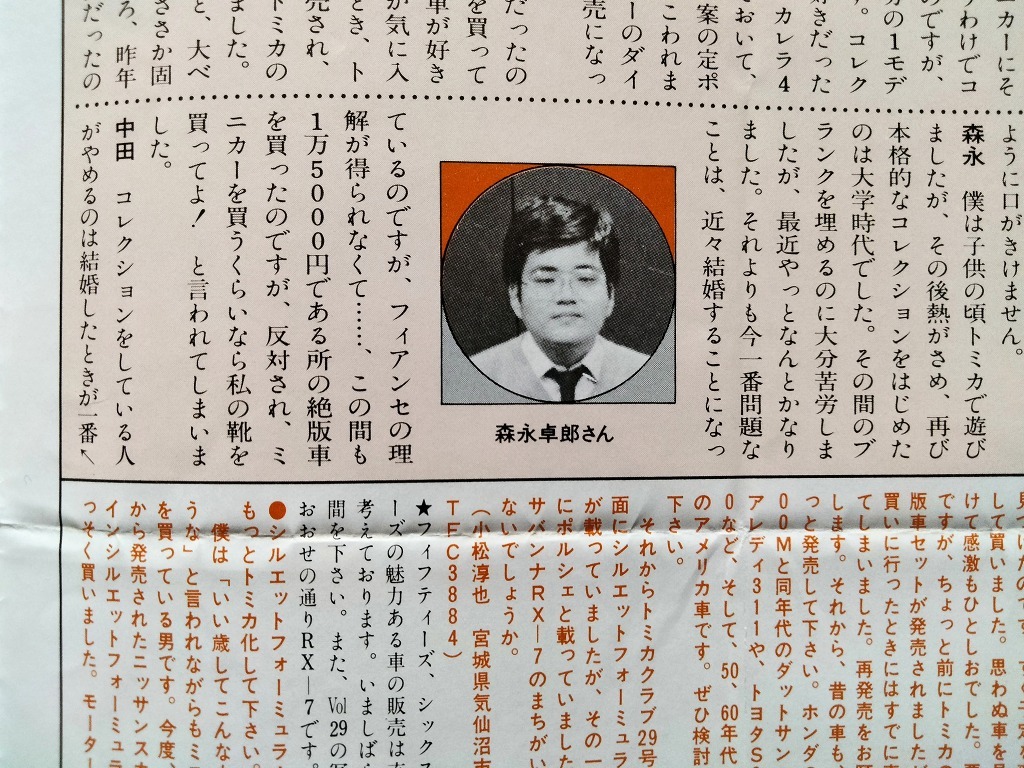 ニカーにそ
うわけでコ
のですが、
分の1モデ
す。コレク
好きだった
カレラ4
ておいて、
案の定ポ
こわれま
ーのダイ
売になっ
だったの
を買って
車が好き
が気に入
とき、ト
売され、
トミカの
ました。
と、大ベ
ささか固
ろ、昨年
だったの
ように口がきけません。
森永　僕は子供の頃トミカで遊び
ましたが、その後熱がさめ、再び
本格的なコレクションをはじめた
のは大学時代でした。その間のブ
ランクを埋めるのに大分苦労しま
したが、最近やっとなんとかなり
ました。それよりも今一番問題な
ことは、近々結婚することになっ
森永卓郎さん
ているのですが、フィアンセの理
解が得られなくて……、この間も
1万5000円である所の絶版車
を買ったのですが、反対され、ミ
ニカーを買うくらいなら私の靴を
買ってよ！　と言われてしまいま
した。
中田　コレクションをしている人
がやめるのは結婚したときが一番↖
して買いました。思わぬ車を
けて感激もひとしおでした。
ですが、ちょっと前にトミカの
版車セットが発売されましたが
買いに行ったときにはすでに
てしまいました。再発売をお
します。それから、昔の車も、
っと発売して下さい。ホンダ
00Mと同年代のダットサン
アレディ311や、トヨタS
0など、そして、50、60年代
のアメリカ車です。ぜひ検討
下さい。
それからトミカクラブ29号
面にシルエットフォーミュラ
が載っていましたが、その一
にポルシェと載っていました
サバンナRX—7のまちがい
ないでしょうか。
（小松淳也　宮城県気仙沼市
TFC3884）
★フィフティーズ、シックス
ーズの魅力ある車の販売は
考えております。いましばら
間を下さい。また、Vol29の
おおせの通りRX—7です。
●シルエットフォーミュラ
もっとトミカ化して下さい。
僕は「いい歳してこんな
うな」と言われながらもミ
を買っている男です。今度、
から発売されたニッサンスカ
インシルエットフォーミュラ
っそく買いました。モーター